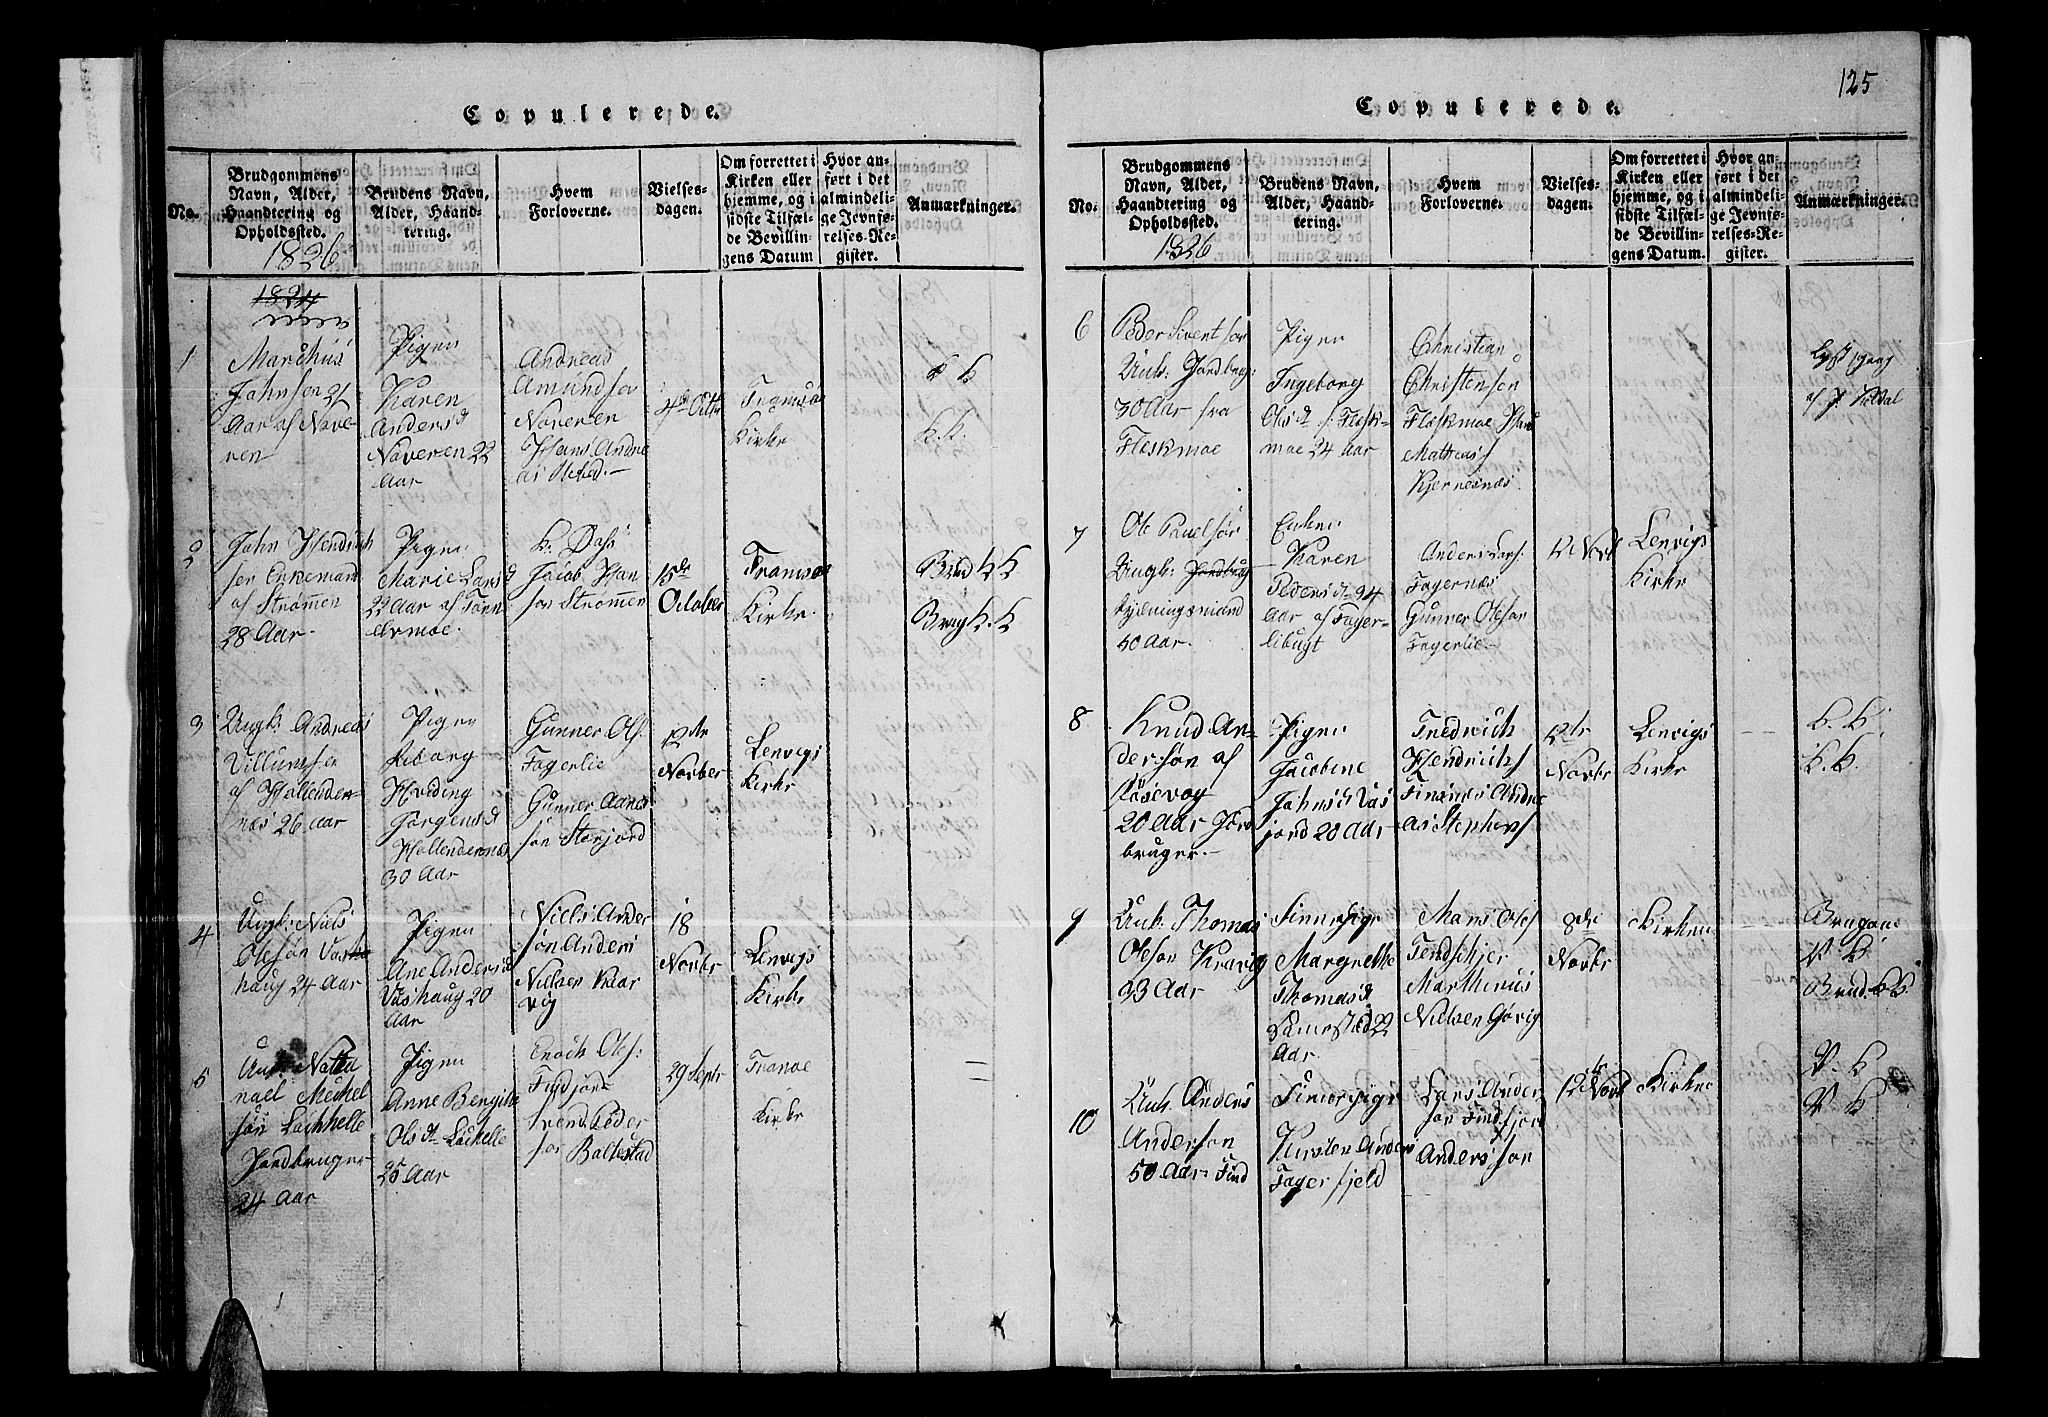 125
Copulerede.
No.
Brudgommens
Navn, Alder,
Haandtering og
Opholdssted.
1826
Brudens Navn,
Alder, Haand-
tering.
Hvem
Forloverne.
Vielses-
dagen.
Om forrettet i
Kirken eller
hjemme, og i
sidste Tilfæl-
de Bevillin-
gens Datum
Hvor an-
ført i det
almindeli-
ge Jevnfø-
relses-Re-
gister.
Anmærkninger.
1824
1
Marchus
Johnsen 21
Aar af Nove-
ren
Pigen
Karen
Andersd
Noveren 22
Aar
Andreas
Amundsen
Noveren
Hans Andre
as
4de Octbr
Tromsøe
Kirke
K K
K. K.
2
John Hendrich
sen Enkemand
af Strømmen
28 Aar.
Pigen
Marie Larsd
22 Aar af
K: Dass
Jacob Han
sen Strømmen
15de
October
Tromsøe
Kirke.
Brud K K
Brug K. K
3
Ungk: Andreas
Villumsen
af Hollender-
næs 26 Aar
Pigen
Hviding
Jørgensd
Hollendernæs
30 Aar
Gunner Ols:
Fagerlie
Gunner Aanes
søn Storjord
12te
Novber
Lenvigs
Kirke
4
Ungk: Niels
Olesøn Vas
haug 24 Aar
Pigen
Ane Andersd
Vashaug 20
Aar
Niels Ander
søn Anders
Nielsen
vig
18
Novbr
Lenvigs
Kirke
5
Natha
nael Mickel
søn Lækkelle
Jordbruger
24 Aar
Pigen
Anne Bengitte
Olsdt Lækelle
25 Aar
Enoch Ols:
Peder
sen Baltestad
29 Septr
Tranøe
Kirke
—
Copulerede.
No.
Brudgommens
Navn, Alder,
Haandtering og
Opholdssted.
1826
Brudens Navn,
Alder, Haand-
tering.
Hvem
Forloverne.
Vielses-
dagen.
Om forrettet i
Kirken eller
hjemme, og i
sidste Tilfæl-
de Bevillin-
gens Datum.
Hvor an-
ført i det
almindeli-
ge Jevnfø-
relses-Re-
gister.
Anmærkninger.
6
Peder Sivertsen
Unk: Jordbrug:
30 Aar fra
Fleskmoe
Pigen
Ingeborg
Olsdt f: Flesk-
moe 24 Aar
Christian
Christensen
Fleskmoe Hans
Matteas
Kjernesnæs
af J. Holdal
7
Ole Povelsøn
Ungk: Jordbrug
Rydningsmand
30 Aar.
Enken
Karen
Pedersdt 34
Aar af Fager-
libugt
Anders Lars:
Fagernæs
Gunner Olesøn
Fagerlie
12 Novb
Lenvigs
Kirke
8
Knud An-
dersøn af
20 Aar Jord
bruger.
Pigen
Jacobine
Johnsd Vas
jord 20 Aar
Fredrich
Hendrichs
Finsnæs Andre
as Stephens
12te
Novbr
Lenvigs
Kirke
K. K.
K. K.
9
Unk: Thomas
Olesøn
33 Aar
Finnepige
Margrethe
Thomasd
22
Aar.
Mons Oles
Marthinus
Nielsen
8de
Novbr
Kirken
Brugom
V. K
Brud. K K
10
Unk. Anders
Andersøn
50 Aar
Finnepige
Kirsten Anders
Fagerfjeld
Lars Ander
sen Findfjor
Andersson
12te Novb
Kirken
V. K
V K